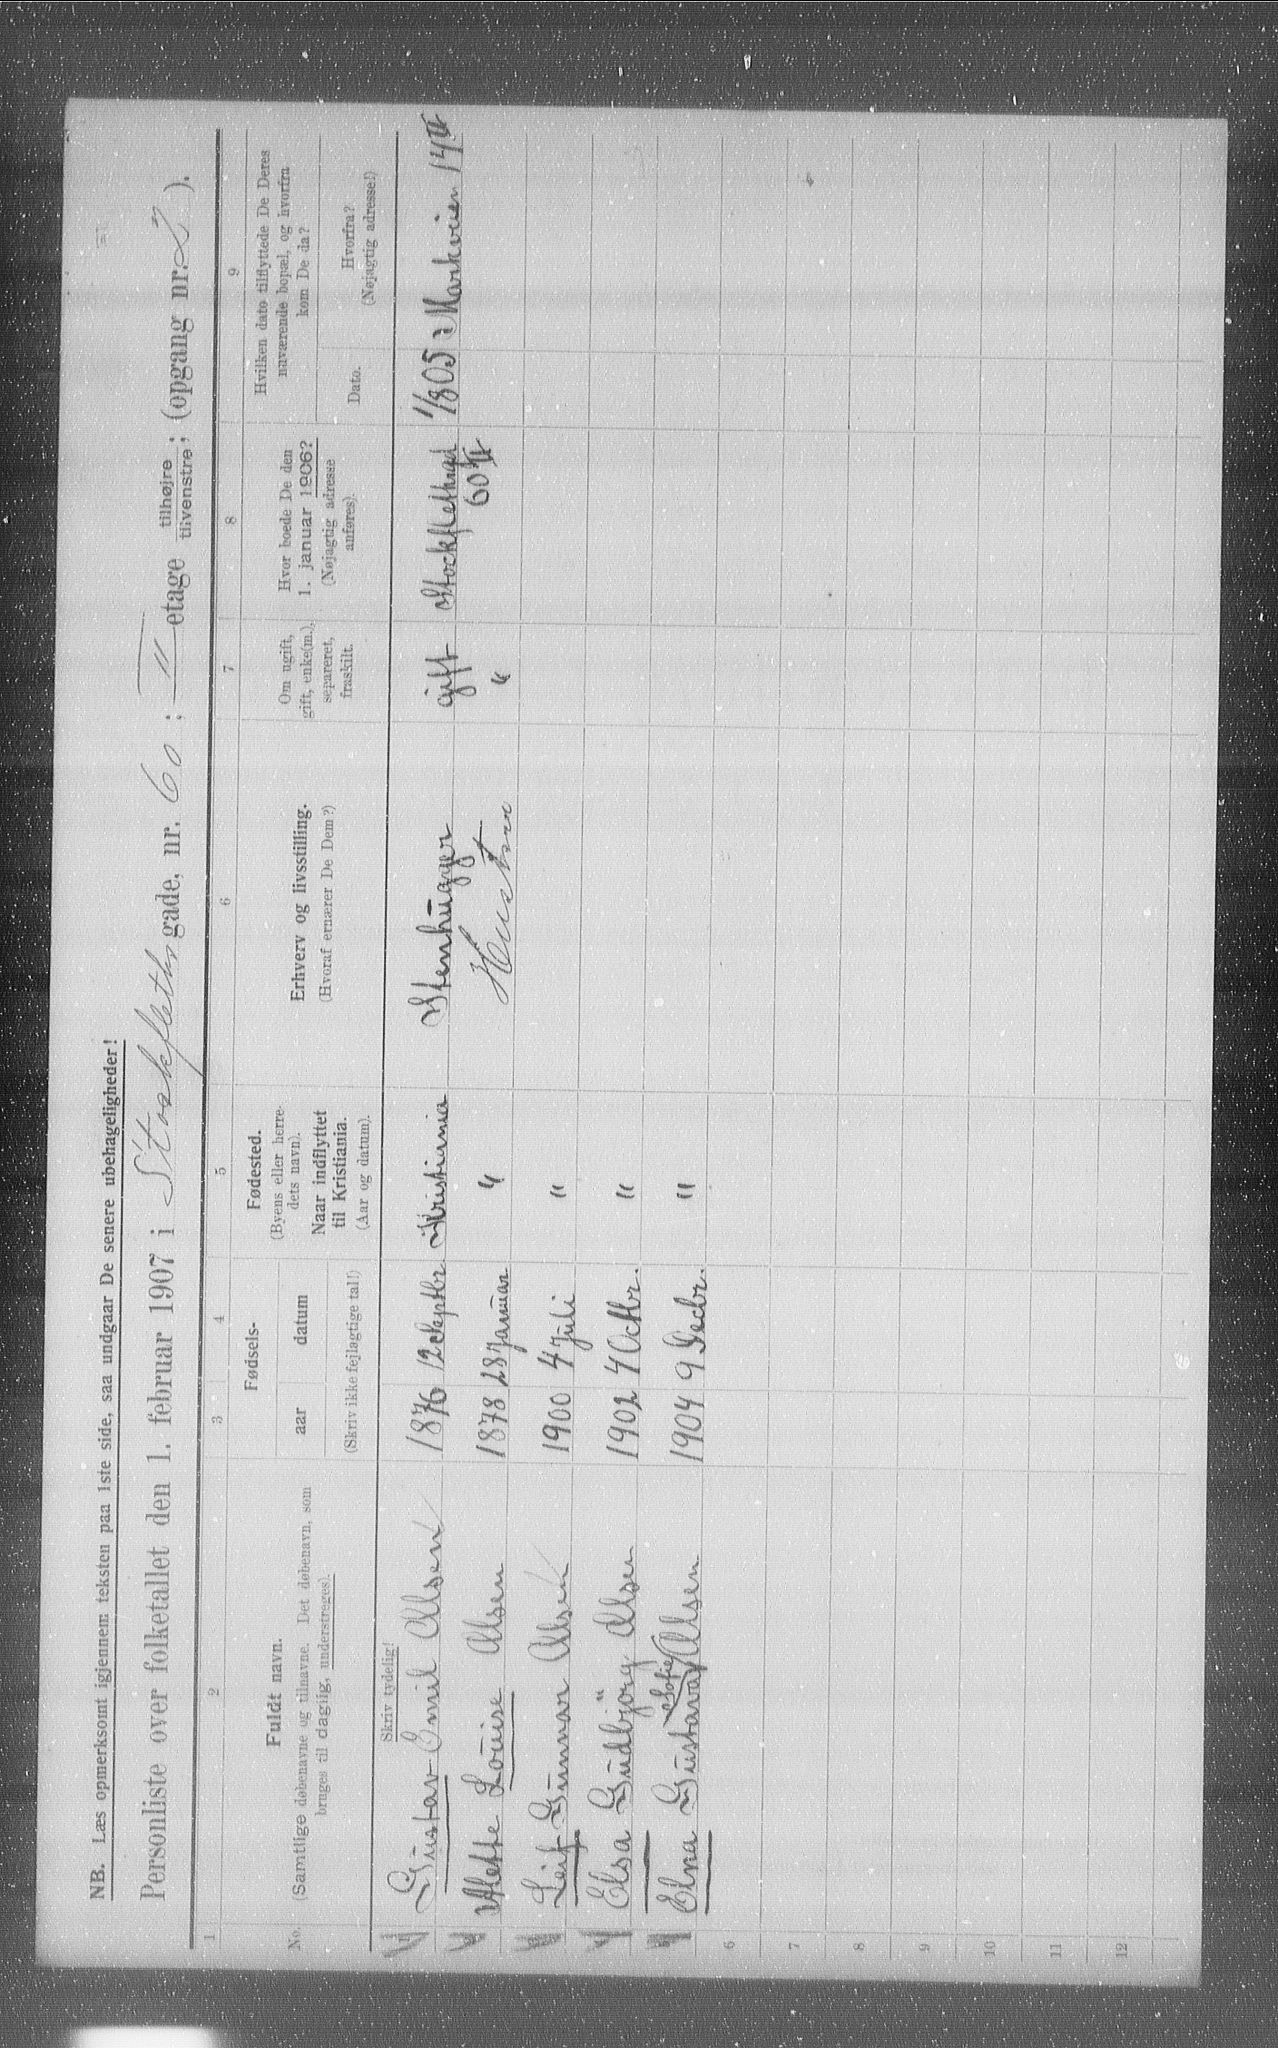 NB. Læs opmerksomt igjennem teksten paa 1ste side, saa undgaar De senere ubehageligheder!
Personliste over folketallet den 1. februar 1907 i Stockfleths gade, nr. 60 ; II etage tilhøjre tilvenstre; (opgang nr. 2 ).
1 2 3 4 5 6 7 8 9
No.
Fuldt navn.
(Samtlige døbenavne og tilnavne. Det døbenavn, som
bruges til daglig, understreges).
Fødsels-
aar datum
(Skriv ikke fejlagtige tal!)
Fødested.
(Byens eller herre-
dets navn).
Naar indflyttet
til Kristiania.
(Aar og datum).
Erhverv og livsstilling.
(Hvoraf ernærer De Dem?)
Om ugift,
gift, enke(m.),
separeret,
fraskilt.
Hvor boede De den
1. januar 1906?
(Nøjagtig adresse
anføres).
Hvilken dato tilflyttede De Deres
nuværende bopæl, og hvorfra
kom De da?
Dato.
Hvorfra?
(Nøjagtig adresse!)
Skriv tydelig!
Gustav Emil Olsen 1876 12 Septbr. Kristiania Stenhugger gift Stockflethsgd 1/8 05 Markveien 14 II
60 II
Alette Louise Olsen 1878 28 Januar " Hustru "
Leif Gunnar Olsen 1900 4 Juli "
Elsa Gudbjörg Olsen 1902 4 Octbr. "
Elna Gustava Sofie Olsen 1904 9 Decbr. "
6
7
8
9
10
11
12